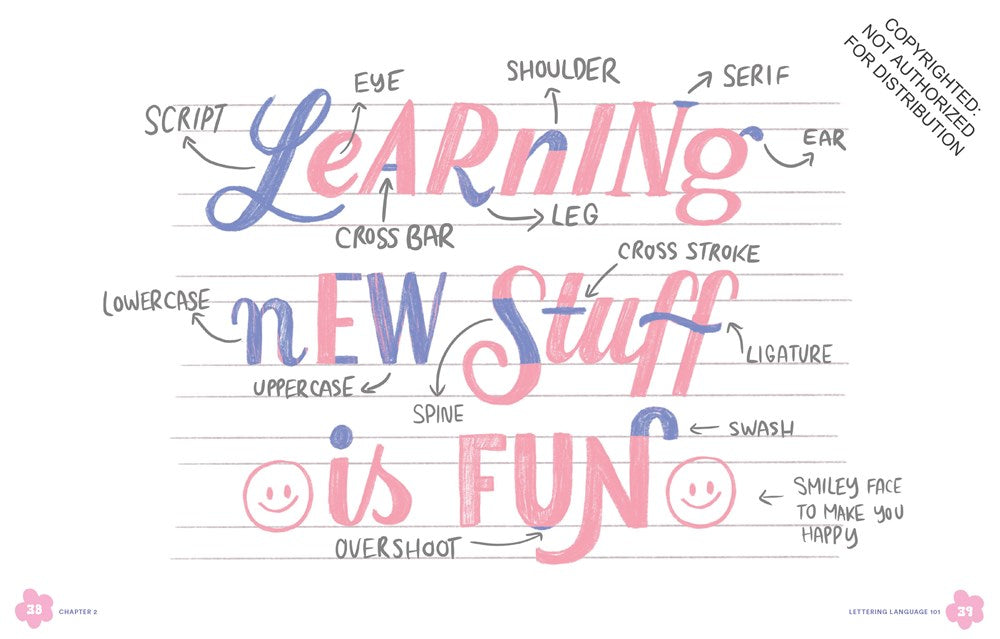 COPYRIGHTED:
NOT AUTHORIZED
FOR DISTRIBUTION
EYE
SHOULDER
SERIF
SCRIPT
LeARnINg
EAR
CROSS BAR
LEG
CROSS STROKE
LOWERCASE
nEW Stuff
LIGATURE
UPPERCASE
SPINE
SWASH
is FUN
SMILEY FACE
TO MAKE YOU
HAPPY
OVERSHOOT
38 CHAPTER 2
LETTERING LANGUAGE 101 39